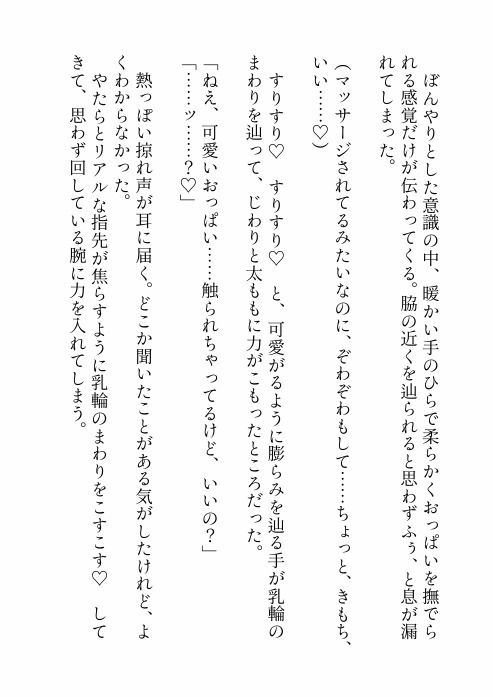 ぼんやりとした意識の中、暖かい手のひらで柔らかくおっぱいを撫でら
れる感覚だけが伝わってくる。脇の近くを辿られると思わずふぅ、と息が漏
れてしまった。
（マッサージされてるみたいなのに、ぞわぞわもして……ちょっと、きもち、
いい……♡）
すりすり♡　すりすり♡　と、可愛がるように膨らみを辿る手が乳輪の
まわりを辿って、じわりと太ももに力がこもったところだった。
「ねえ、可愛いおっぱい……触られちゃってるけど、いいの？」
「……ッ……？♡」
熱っぽい掠れ声が耳に届く。どこか聞いたことがある気がしたけれど、よ
くわからなかった。
やたらとリアルな指先が焦らすように乳輪のまわりをこすこす♡　して
きて、思わず回している腕に力を入れてしまう。